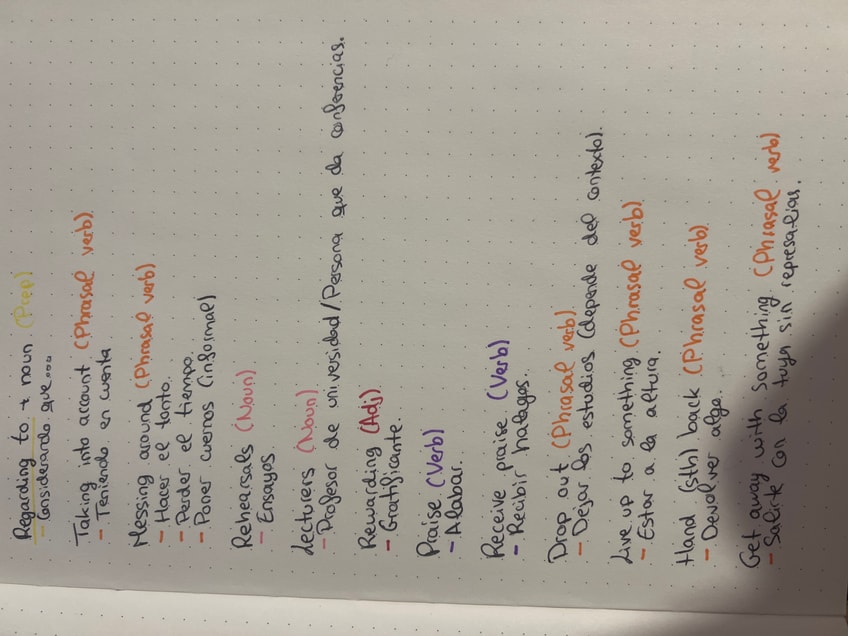 Regarding to + noun (Prep)
- Considerando que...
Taking into account (Phrasal verb)
- Teniendo en cuenta
Messing around (Phrasal verb)
- Hacer el tonto.
- Perder el tiempo.
- Poner cuernos (informal)
Rehearsals (Noun)
- Ensayos
Lecturers (Noun)
- Profesor de universidad/Persona que da conferencias.
Rewarding (Adj)
- Gratificante.
Praise (Verb)
- Alabar.
Receive praise (Verb)
- Recibir halagos.
Drop out (Phrasal verb)
- Dejar los estudios (depende del contexto).
Live up to something (Phrasal verb)
- Estar a la altura.
Hand (sth) back (Phrasal verb)
- Devolver algo.
Get away with something (Phrasal verb)
- Salirte con la tuya sin represalias.